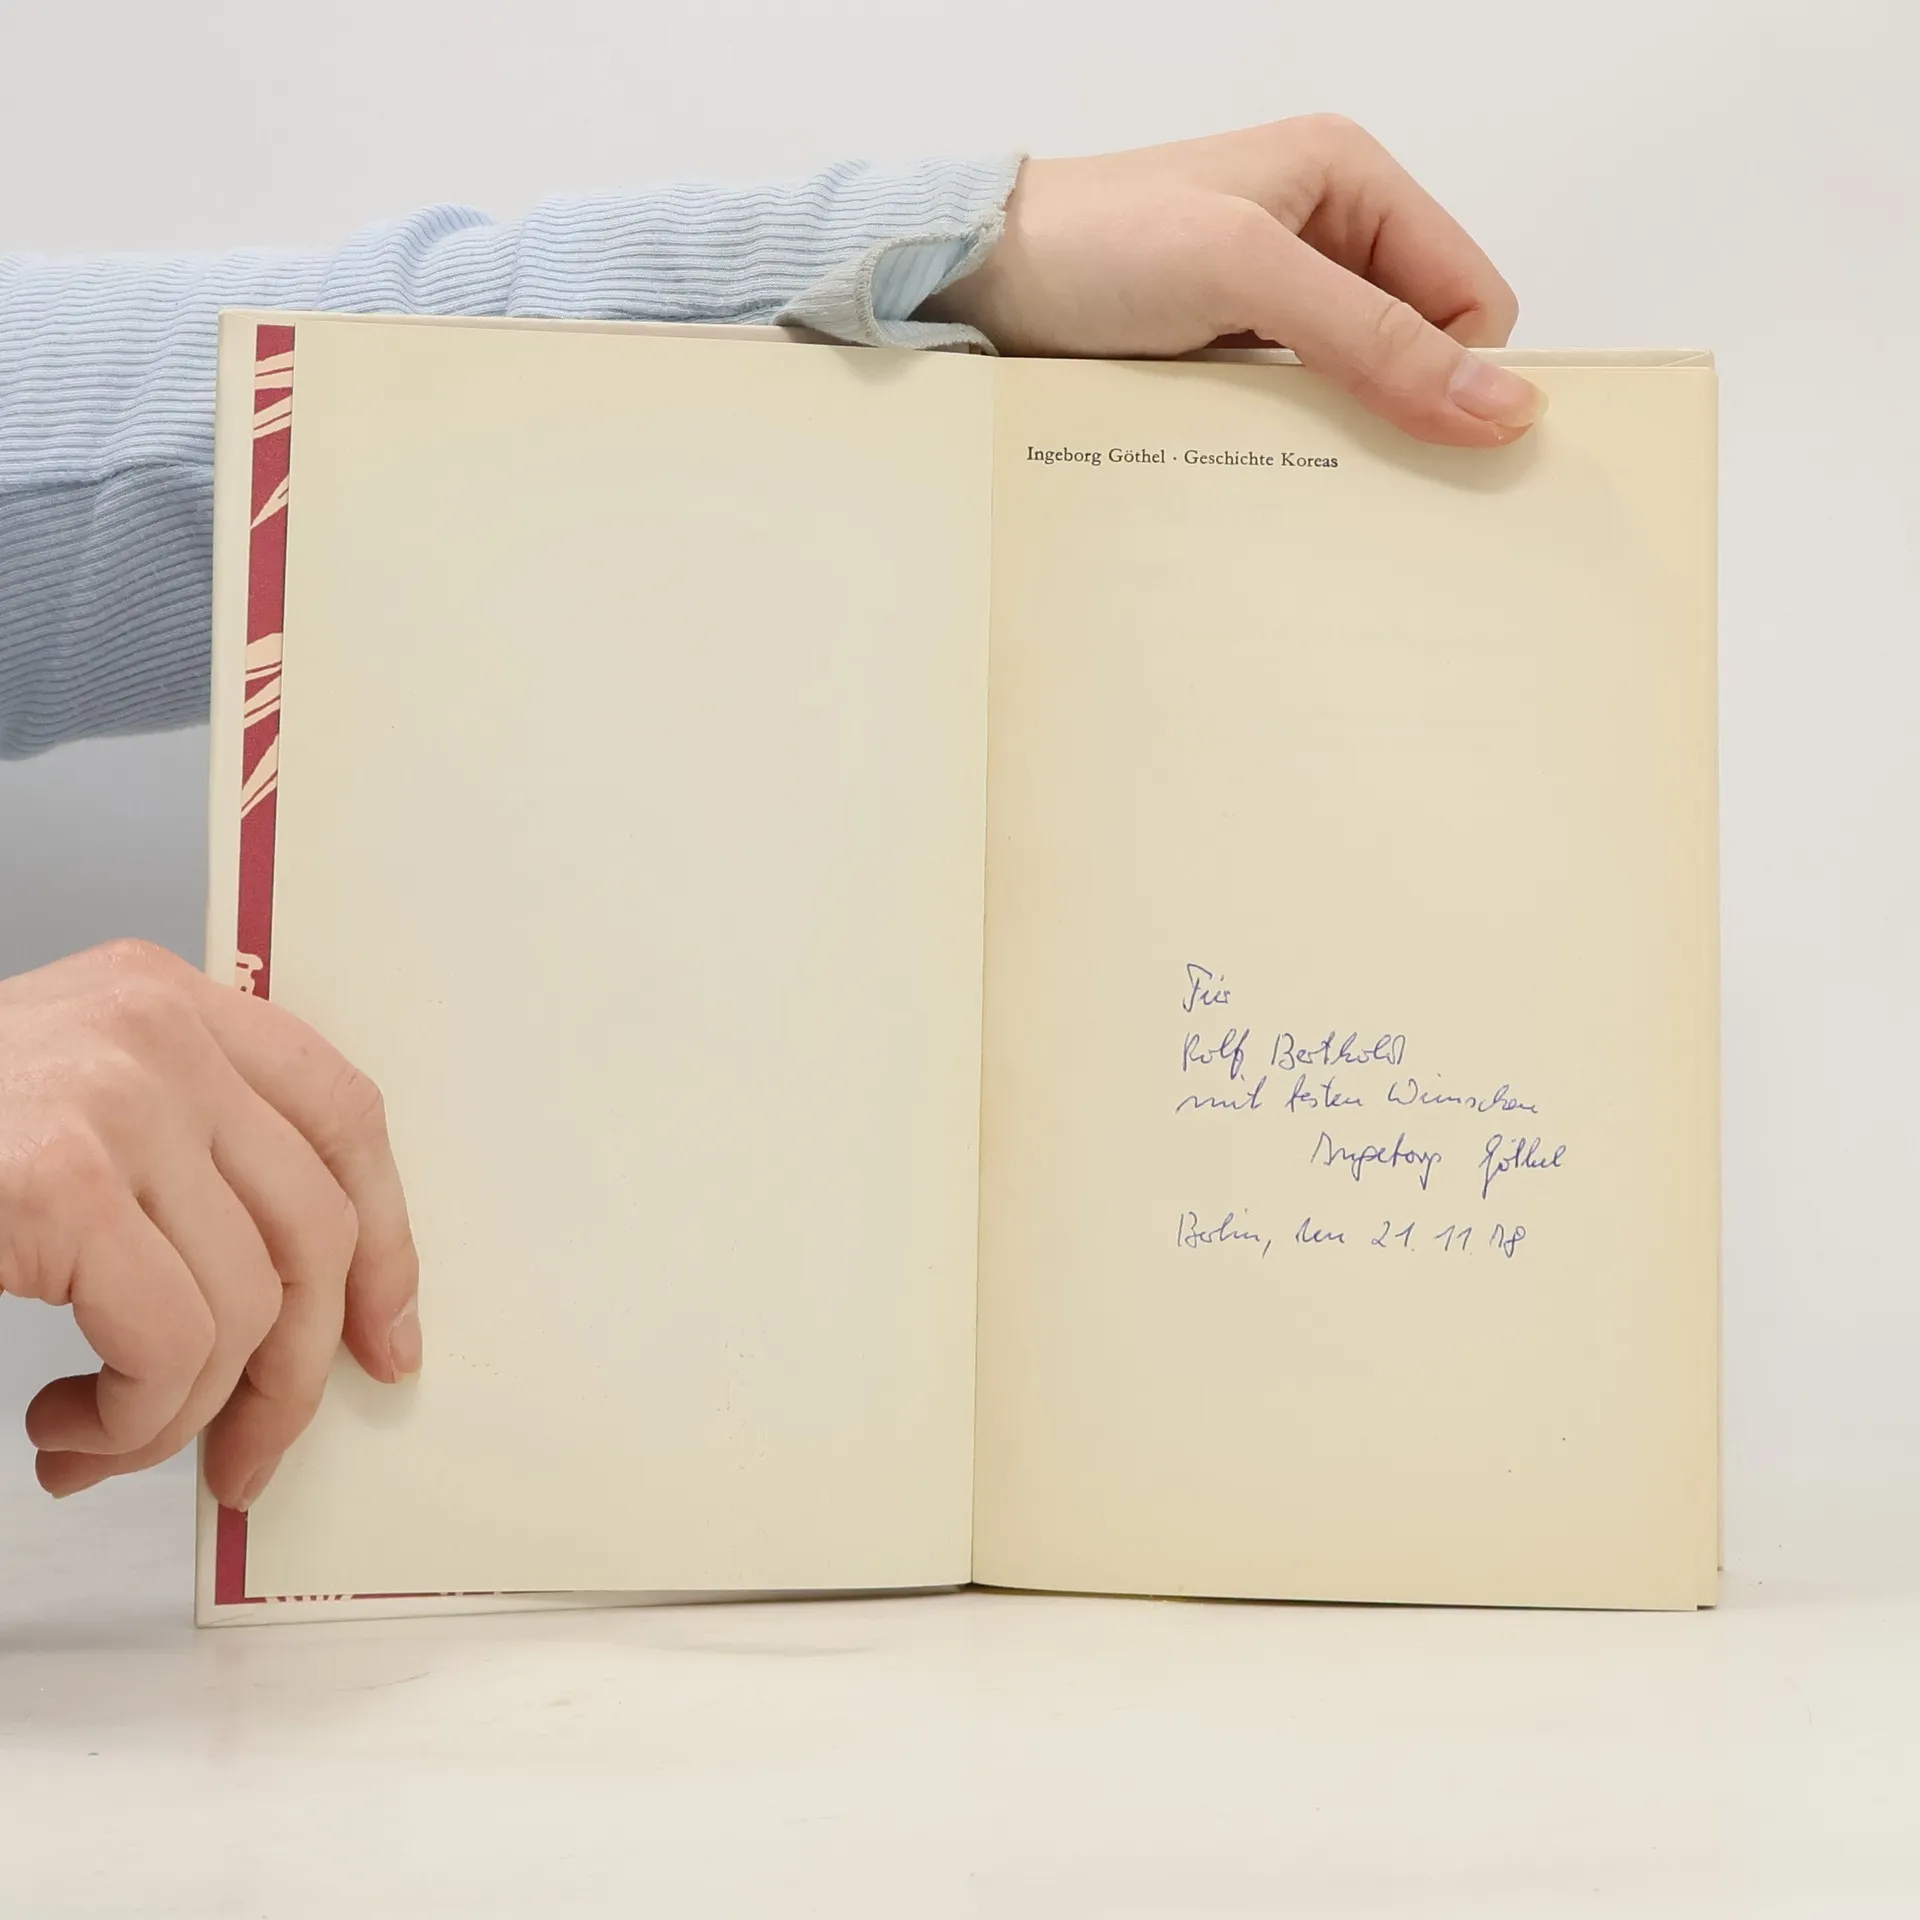 Ingeborg Göthel · Geschichte Koreas
Für
Rolf Berthold
mit besten Wünschen
Ingeborg Göthel
Berlin, den 21. 11. 78